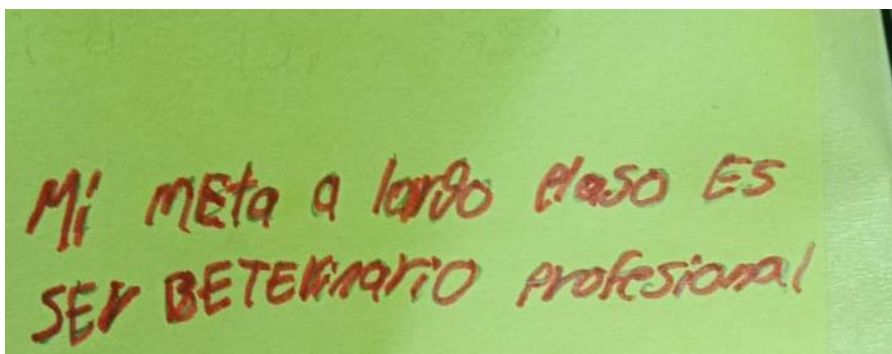 Mi mEta a largo plaso Es
SEr BETErinario profesional